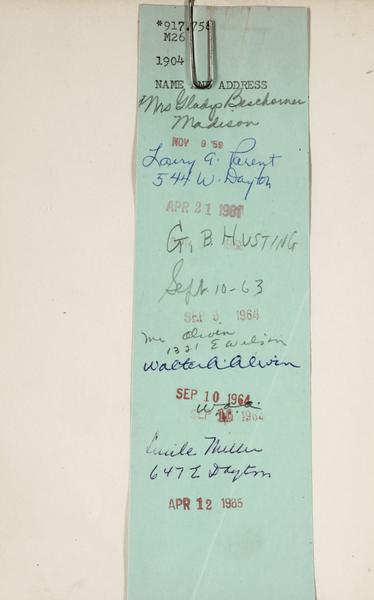 *917.758
M26
1904
NAME AND ADDRESS
Mrs Gladys Beschorner
Madison
NOV 9 '59
Parent
544 W. Dayton
APR 21 1961
G. B. HUSTING
Sept. 10-63
SEP 1964
Mr Alwin
1321 E Wilson
Walter A. Alwin
SEP 10 1964
W.A.A.
SEP 1964
Lucile Miller
647 E Dayton
APR 12 1965